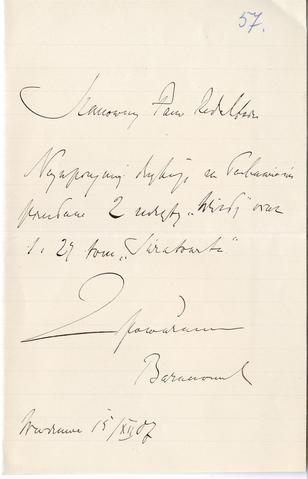 57.
Szanowny Panie Redaktorze
Najuprzejmiej dziękuję za łaskawie
przesłane 2 zeszyty „Wisły” oraz
1. 27 tom „Światowita”
Z poważaniem
Warszawa 15/XII 07